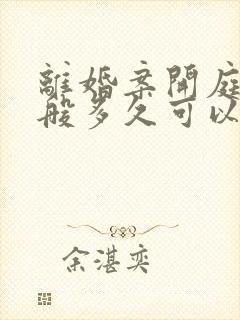 離婚案開庭
般多久可以
余湛奕